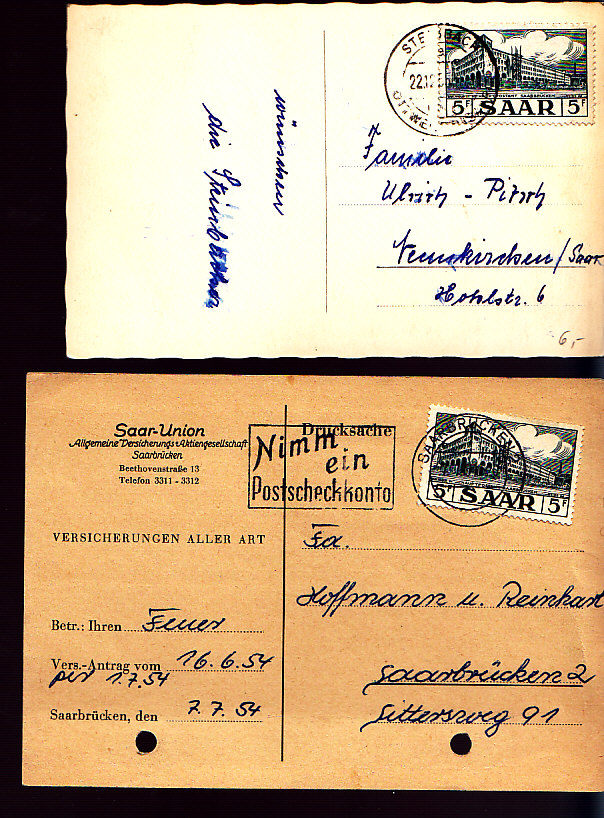 STEINBACH
22.12.5
HAUPTPOSTAMT SAARBRÜCKEN
5F SAAR 5F
wünschen
die Steinbacher
Familie
Ulrich - Pitsch
Neunkirchen/Saar
Hohlstr. 6
6,-
Saar-Union
Allgemeine Versicherungs-Aktiengesellschaft
Saarbrücken
Beethovenstraße 13
Telefon 3311 - 3312
Drucksache
Nimm
ein
Postscheckkonto
SAARBRÜCKEN
5F SAAR 5F
VERSICHERUNGEN ALLER ART
Fa.
Hoffmann u. Reinhart
Betr.: Ihren Feuer
Vers.-Antrag vom 16.6.54
per 1.7.54
Saarbrücken, den 7.7.54
Saarbrücken 2
Sittersweg 91